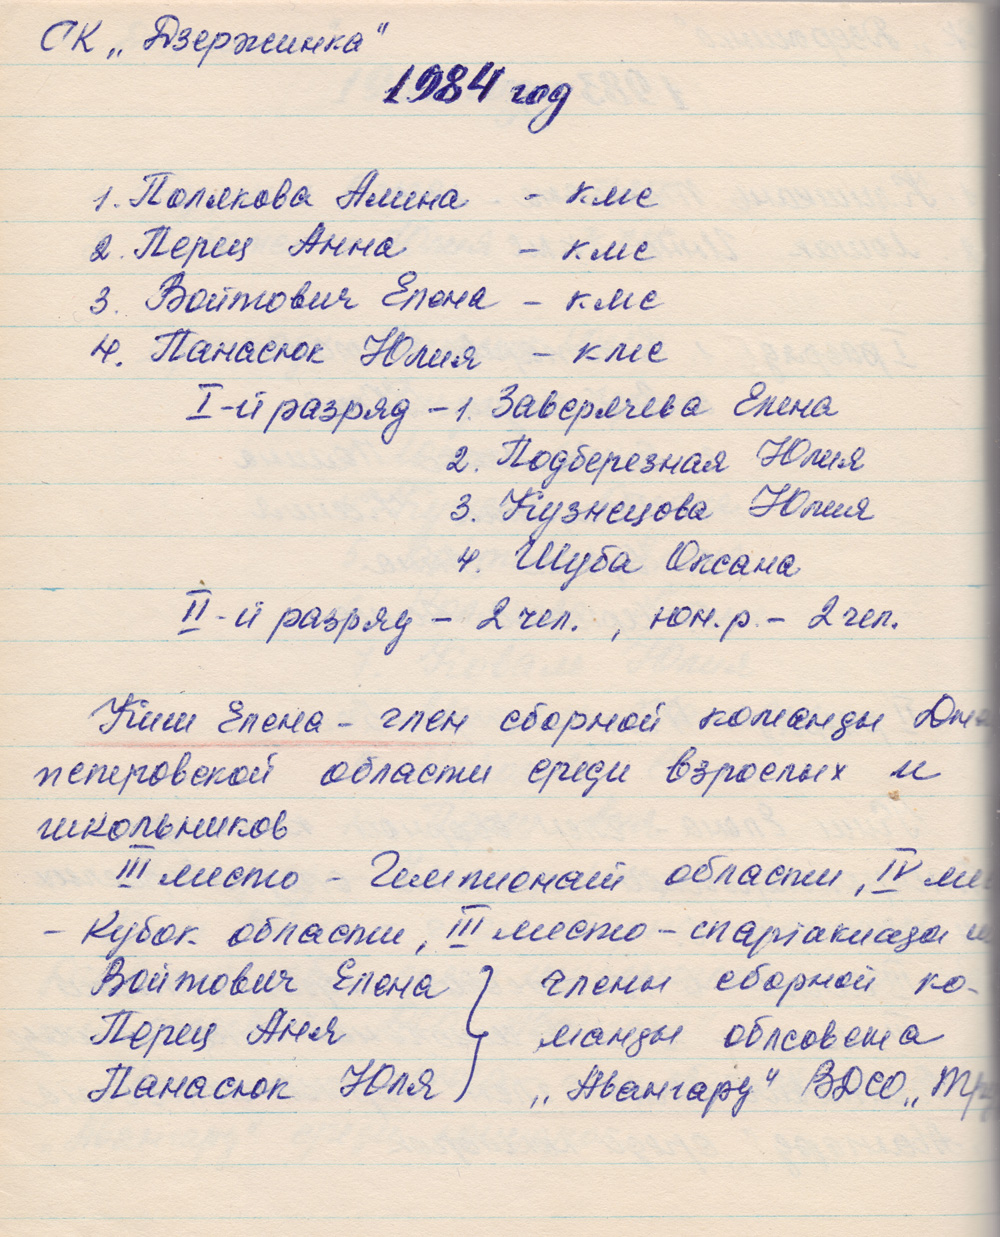 СК „Дзержинка"
1984 год
1. Полякова Алина - кмс
2. Перец Анна - кмс
3. Войтович Елена - кмс
4. Панасюк Юлия - кмс
I-й разряд - 1. Заверячева Елена
2. Подберезная Юлия
3. Кузнецова Юлия
4. Шуба Оксана
II-й разряд - 2 чел., юн.р. - 2 чел.
Киш Елена - член сборной команды Дне
пепровской области среди взрослых и
школьников
III место - Чемпионат области, IV мес
- Кубок области, III место - спартакиады
Войтович Елена } члены сборной ко-
Перец Аня } манды облсовета
Панасюк Юля } „Авангард" ВДСО „Тру